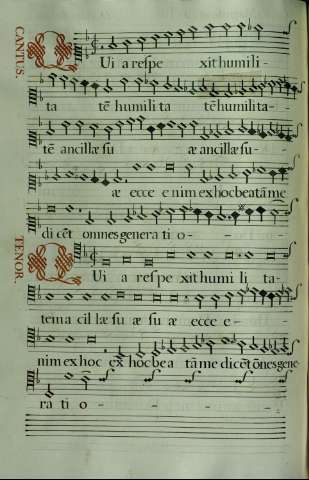 CANTUS.
QUi a respe xit humili-
ta tē humili ta tē humilita-
tē ancillæ su æ ancillæ su
æ ecce e nim ex hoc beatā me
dicēt omnes genera ti o-
TENOR.
QUi a respe xit humi li ta-
tem a cil læ su æ su æ ecce e-
nim ex hoc ex hoc bea tā me dicēt ōnes gene
ra ti o-